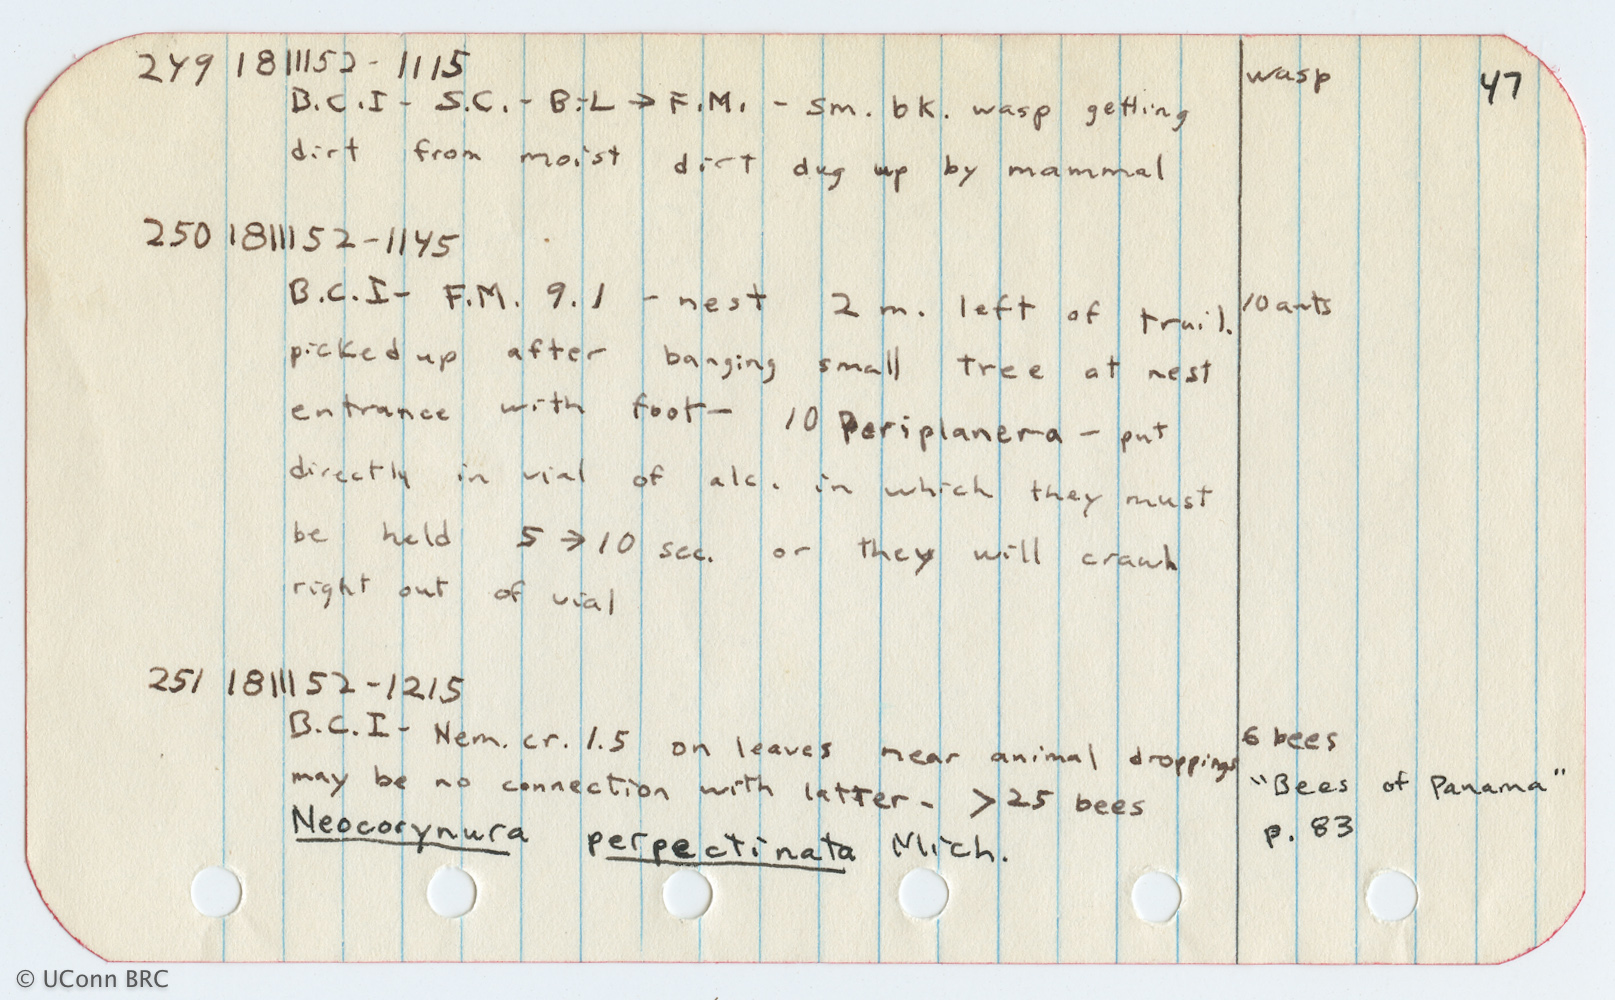 47
249 18III52 - 1115
B.C.I - S.C. - B:L → F.M. - sm. bk. wasp getting wasp
dirt from moist dirt dug up by mammal
250 18III52 - 1145
B.C.I - F.M. 9.1 - nest 2 m. left of trail. 10 ants
picked up after banging small tree at nest
entrance with foot - 10 Periplanera - put
directly in vial of alc. in which they must
be held 5 → 10 sec. or they will crawl
right out of vial
251 18III52 - 1215
B.C.I - Nem. cr. 1.5 on leaves near animal droppings 6 bees
may be no connection with latter - > 25 bees "Bees of Panama"
Neocorynura perpectinata Mich. p. 83
© UConn BRC